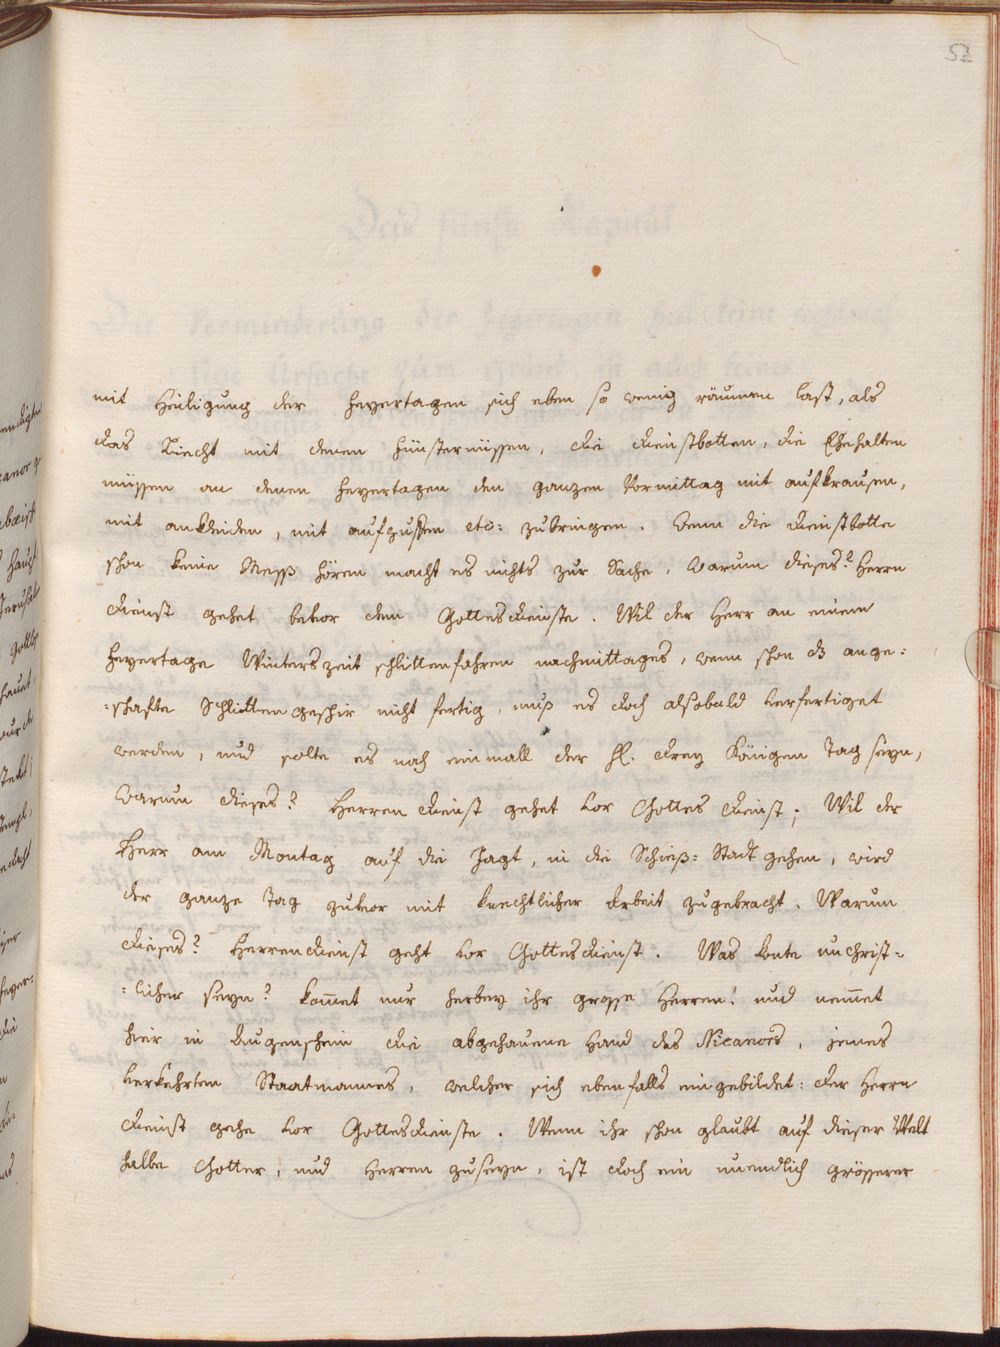 52
mit Heiligung der Feyertagen sich eben so wenig räumen last, als
das Liecht mit denen Finsternüssen, die Dienstbotten, die Ehehalten
müssen an denen Feyertagen den ganzen Vormittag mit aufkrausen,
mit ankleiden, mit aufzuputzen etc: zubringen. Wenn die Dienstbotte
schon keine Mess hören macht es nichts zur Sache, warum dieses? Herrn
Dienst gehet bevor dem Gottesdienste. Wil der Herr an einem
Feyertage Winterszeit schlittenfahren nachmittages, wenn schon dz ange:
:schafte Schlittengeschir nicht fertig, muß es doch alsobald verfertiget
werden, und solte es noch einmall der hl. drey Königen Tag seyn,
Warum dieses? Herren dienst gehet vor Gottes dienst; Wil der
Herr am Montag auf die Jagt, in die Schieß: Stadt gehen, wird
der ganze Tag zuvor mit knechtlicher Arbeit zugebracht. Warum
dieses? Herrendienst geht vor Gottesdienst. Was konte unchrist-
:licher seyn? kom̄et nur herbey ihr grosse Herren! und nem̄et
hier in Augenschein die abgehauene Hand des Nicanors, jenes
verkehrten Staatmannes, welcher sich ebenfalls eingebildet: der Herrn
dienst gehe vor Gottesdienste. Wenn ihr schon glaubt auf dieser Welt
halbe Götter, und Herren zuseyn, ist doch ein unendlich grösserer